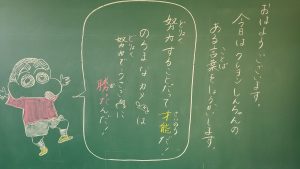 おはようございます。
今日はクレヨンしんちゃんの
ある言葉をしょうかいします。
努力することだって才能だ!
のろまなカメは
努力でうさぎに
勝ったんだ!